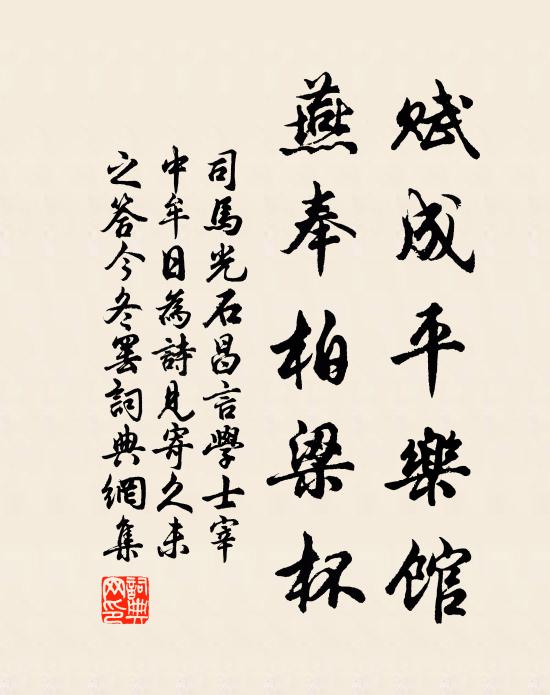 賦成平樂館
燕奉柏梁杯
司馬光石昌言學士宰
中牟日為詩見寄久未
之答今冬罢詞典網集
詞典网印